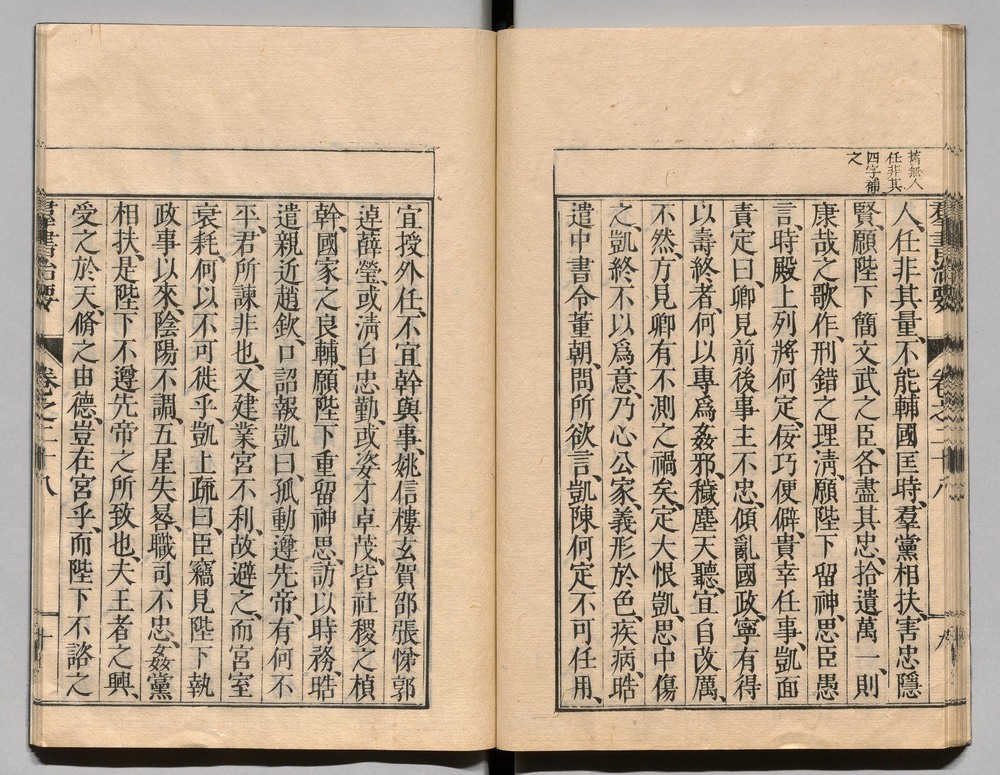 舊無人
任非其
四字補
之
人、任非其量、不能輔國匡時、羣黨相扶、害忠隱
賢、願陛下簡文武之臣、各盡其忠、拾遺萬一、則
康哉之歌作、刑錯之理淸、願陛下留神、思臣愚
言、時殿上列將何定、佞巧便僻、貴幸任事、凱面
責定曰、卿見前後事主不忠、傾亂國政、寧有得
以壽終者、何以專爲姦邪、穢塵天聽、宜自改厲、
不然、方見卿有不測之禍矣、定大恨凱、思中傷
之、凱終不以爲意、乃心公家、義形於色、疾病、晧
遣中書令董朝、問所欲言、凱陳何定不可任用、
羣書治要 卷之二十八 九
宜授外任、不宜幹與事、姚信樓玄賀邵張悌郭
逴薛瑩、或淸白忠勤、或姿才卓茂、皆社稷之楨
幹、國家之良輔、願陛下重留神思、訪以時務、晧
遣親近趙欽、口詔報凱曰、孤動遵先帝、有何不
平、君所諫非也、又建業宮不利、故避之、而宮室
衰耗、何以不可徙乎、凱上疏曰、臣竊見陛下執
政事以來、陰陽不調、五星失晷、職司不忠、姦黨
相扶、是陛下不遵先帝之所致也、夫王者之興、
受之於天、脩之由德、豈在宮乎、而陛下不諮之
羣書治要 卷之二十八 十